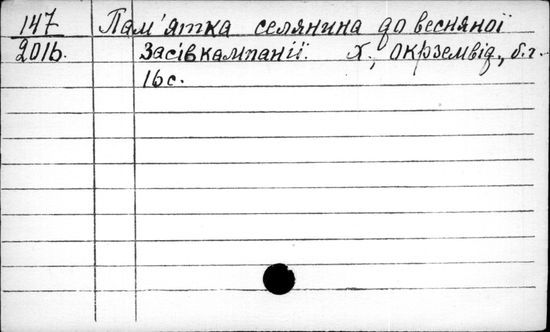 147 Пам'ятка селянина до весняної
201б. Засівкампанії. Х., Окрземвід., б.г.
16с.